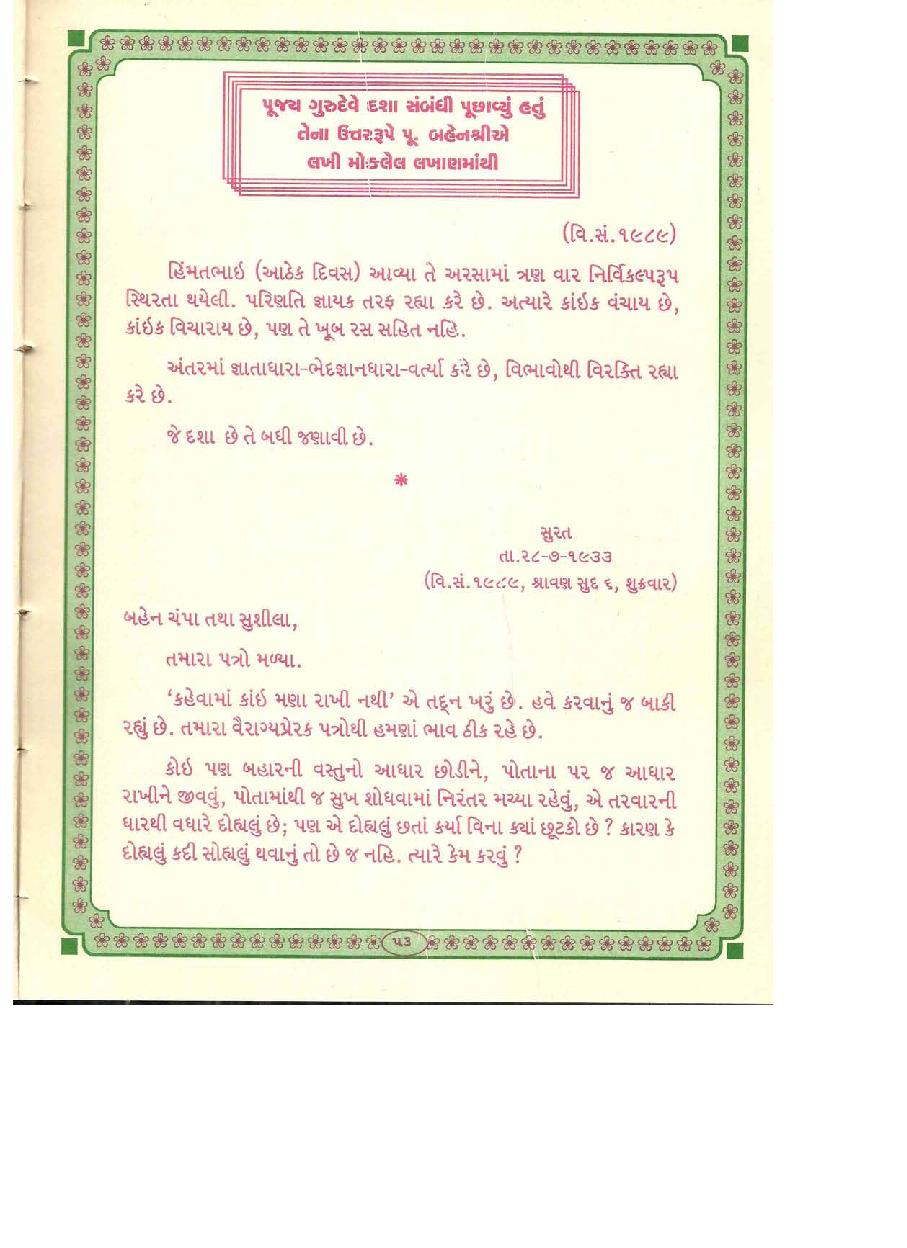 પૂજ્ય ગુરુદેવે દશા સંબંધી પૂછાવ્યું હતું
તેના ઉત્તરરૂપે પૂ. બહેનશ્રીએ
લખી મોકલેલ લખાણમાંથી
(વિ.સં.૧૯૮૯)
હિંમતભાઇ (આઠેક દિવસ) આવ્યા તે અરસામાં ત્રણ વાર નિર્વિકલ્પરૂપ
સ્થિરતા થયેલી. પરિણતિ જ્ઞાયક તરફ રહ્યા કરે છે. અત્યારે કાંઇક વંચાય છે,
કાંઇક વિચારાય છે, પણ તે ખૂબ રસ સહિત નહિ.
અંતરમાં જ્ઞાતાધારા-ભેદજ્ઞાનધારા-વર્ત્યા કરે છે, વિભાવોથી વિરક્તિ રહ્યા
કરે છે.
જે દશા છે તે બધી જણાવી છે.
*
સુરત
તા.૨૮-૭-૧૯૩૩
(વિ.સં.૧૯૮૯, શ્રાવણ સુદ ૬, શુક્રવાર)
બહેન ચંપા તથા સુશીલા,
તમારા પત્રો મળ્યા.
‘કહેવામાં કાંઇ મણા રાખી નથી’ એ તદ્દન ખરું છે. હવે કરવાનું જ બાકી
રહ્યું છે. તમારા વૈરાગ્યપ્રેરક પત્રોથી હમણાં ભાવ ઠીક રહે છે.
કોઇ પણ બહારની વસ્તુનો આધાર છોડીને, પોતાના પર જ આધાર
રાખીને જીવવું, પોતામાંથી જ સુખ શોધવામાં નિરંતર મચ્યા રહેવું, એ તરવારની
ધારથી વધારે દોહ્યલું છે; પણ એ દોહ્યલું છતાં કર્યા વિના ક્યાં છૂટકો છે ? કારણ કે
દોહ્યલું કદી સોહ્યલું થવાનું તો છે જ નહિ. ત્યારે કેમ કરવું ?
૫૩